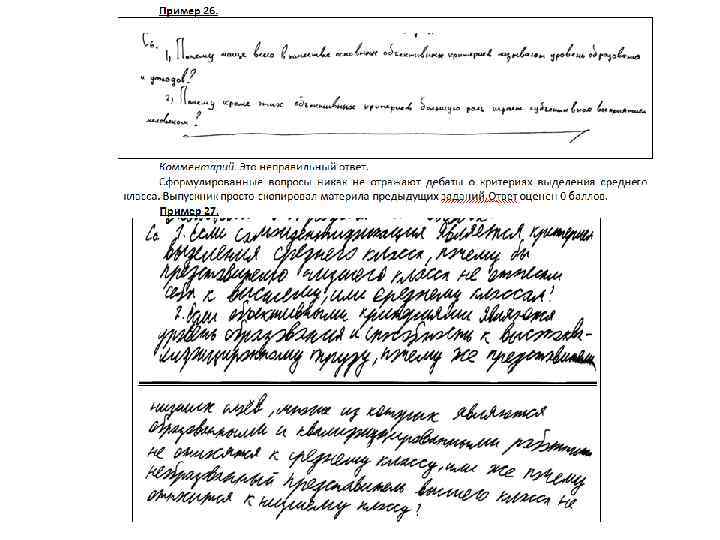 Пример 26.
С6.
1) Почему чаще всего в качестве основных объективных критериев называют уровень образования
и доходов?
2) Почему кроме этих объективных критериев большую роль играет субъективное восприятие
человеком?
Комментарий. Это неправильный ответ.
Сформулированные вопросы никак не отражают дебаты о критериях выделения среднего
класса. Выпускник просто скопировал материла предыдущих заданий.Ответ оценен 0 баллов.
Пример 27.
С6 1. Если самоидентификация является критерием
выделения среднего класса, почему бы
представителю низшего класса не отнести
себя к высшему, или среднему классам?
2. Если объективными критериями являются
уровень образования и способность к высококва-
лифицированному труду, почему же представители
низших слоёв, многие из которых являются
образованными и квалифицированными
не относятся к среднему классу, или же почему
необразованный представитель высшего класса не
относится к низшему классу?